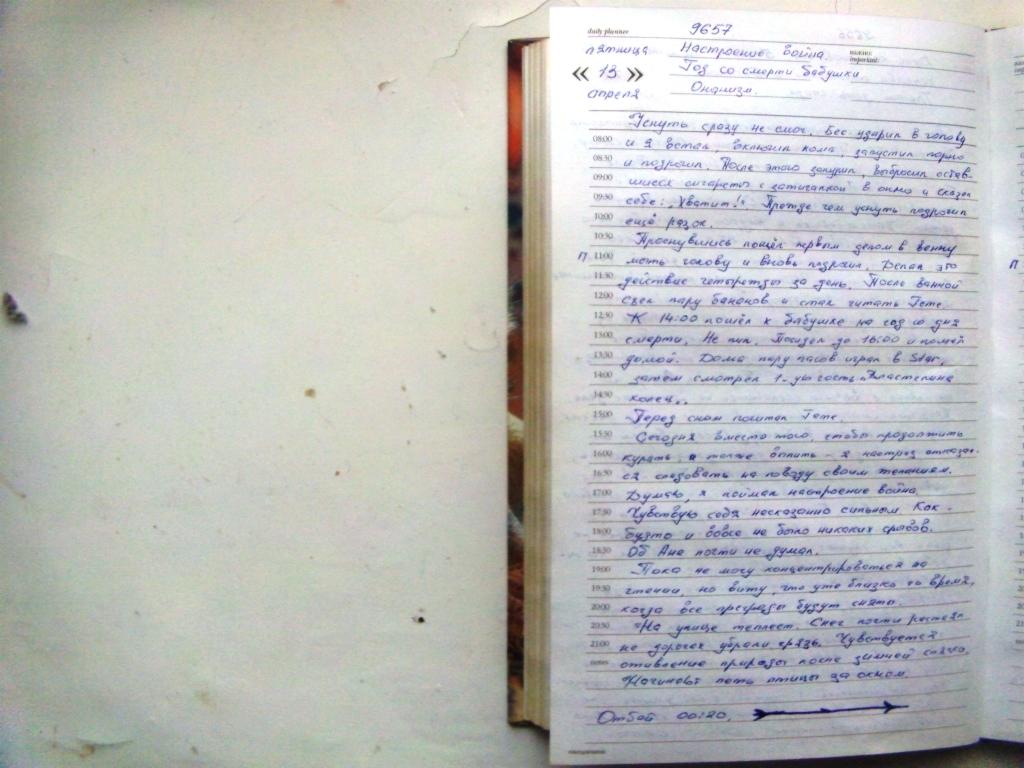 daily planner
9657
пятница
Настроение война.
важно:
important:
« 13 »
Год со смерти бабушки
апреля
Онанизм.
Уснуть сразу не смог. Бес ударил в голову
08:00
и я встал, включил комп, запустил порно
08:30
и подрочил. После этого закурил, выбросил остав-
09:00
шиеся сигареты с зажигалкой в окно и сказал
09:30
себе: „Хватит!" Прежде чем уснуть подрочил
10:00
ещё разок.
10:30
Проснувшись пошёл первым делом в ванну
П 11:00
мыть голову и вновь подрочил. Делал это
11:30
действие четырежды за день. После ванной
12:00
съел пару бананов и стал читать Гёте.
12:30
К 14:00 пошёл к бабушке на год со дня
13:00
смерти. Не пил. Посидел до 16:00 и пошёл
13:30
домой. Дома пару часов играл в Star,
14:00
затем смотрел 1-ую часть „Властелина
14:30
колец„.
15:00
Перед сном почитал Гёте.
15:30
Сегодня вместо того, чтобы продолжить
16:00
курить, а также опять - я наотрез отказал-
16:30
ся следовать на поводу своим желаниям.
17:00
Думаю, я поймал настроение война.
17:30
Чувствую себя несказанно сильным. Как-
18:00
будто и вовсе не было никаких срывов.
18:30
Об Ане почти не думал.
19:00
Пока не могу концентрироваться на
19:30
чтении, но вижу, что уже близко то время,
20:00
когда все преграды будут сняты.
20:30
На улице теплеет. Снег почти растаял
21:00
на дорогах убрали грязь. Чувствуется
notes
оживление природы после зимней спячки.
Начинают петь птицы за окном.
Отбой 00:20.
П